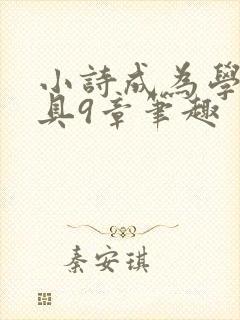 小詩成為學
具9章筆趣
秦安琪